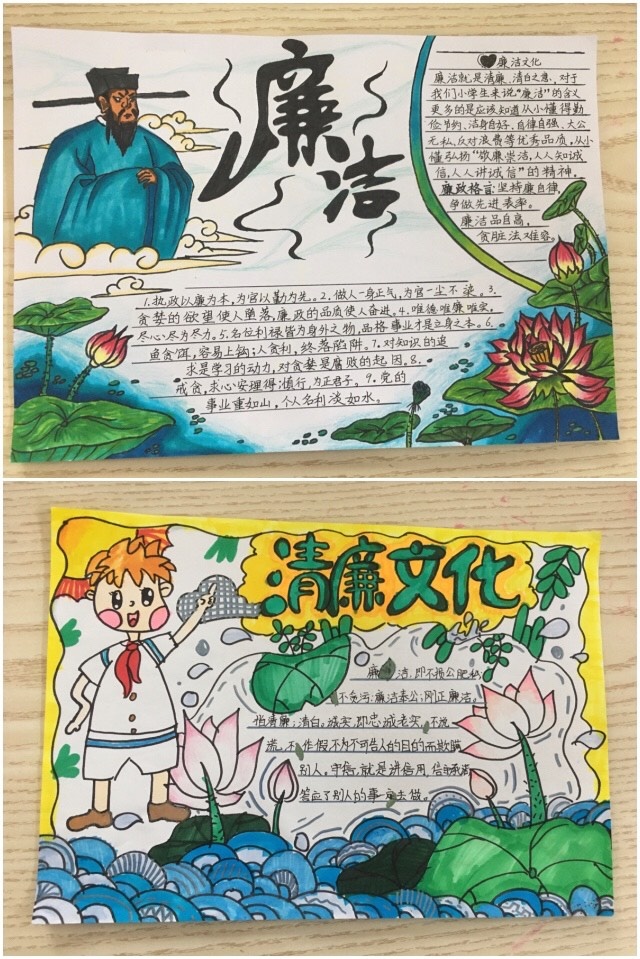 廉洁
廉洁文化
廉洁就是清廉、清白之意，对于
我们小学生来说"廉洁"的含义
更多的是应该知道从小懂得勤
俭节约、洁身自好、自律自强、大公
无私、反对浪费等优秀品质，从小
懂弘扬"敬廉崇洁，人人知诚
信，人人讲诚信"的精神。
廉政格言：坚持廉自律，
争做先进表率。
廉洁品自高，
贪脏法难容。
1.执政以廉为本，为官以勤为先。2.做人一身正气，为官一尘不染。3.
贪婪的欲望使人坠落，廉政的品质使人奋进。4.唯德唯廉唯实，
尽心尽为尽力。5.名位利禄皆为身外之物，品格事业才是立身之本。6.
鱼贪饵，容易上钩；人贪利，终落陷阱。7.对知识的追
求是学习的动力，对贪婪是腐败的起因。8.
戒贪，求心安理得；慎行，为正君子。9.党的
事业重如山，个人名利淡如水。
清廉文化
廉洁，即不损公肥私
不贪污；廉洁奉公；刚正廉洁。
清廉；清白。诚实，即忠诚老实，不说
谎，不作假，不为不可告人的目的而欺瞒
别人。守信，就是讲信用，信守承诺
答应了别人的事一定去做。